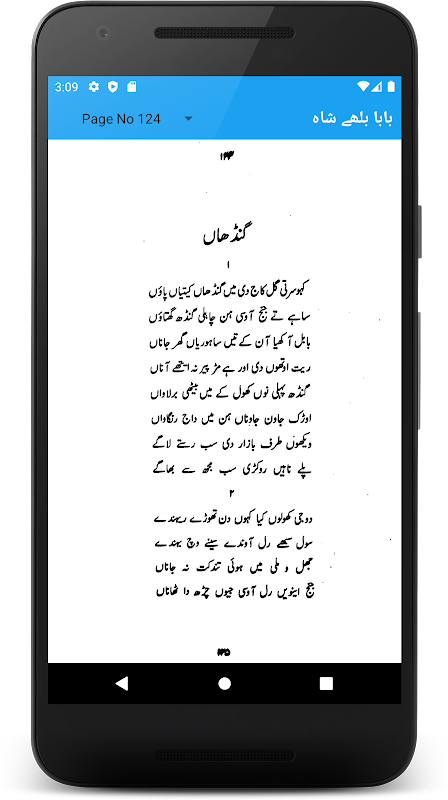 3:09
Page No 124
بابا بلھے شاہ
۱۲۴
گنڈھاں
۱
کہو سرتی گل کاج دی میں گنڈھاں کیتیاں پاؤں
ساہے تے جنج آوسی ہن چاہلی گنڈھ گھتاؤں
بابل آکھیا آن کے تیں ساہوریاں گھر جاناں
ریت اوتھوں دی اور ہے مڑ پیر نہ ایتھے آناں
گنڈھ پہلی نوں کھول کے میں بیٹھی برلاواں
اوڑک جاون جاوناں ہن میں داج رنگاواں
ویکھوں طرف بازار دی سب رستے لاگے
پلے ناہیں روکڑی سب مجھ سے بھاگے
۲
دوجی کھولوں کیا کہوں دن تھوڑے رہندے
سول سبھے رل آوندے سینے وچ بہندے
جھل و ملی میں ہوئی تند کت نہ جاناں
جنج اینویں رل آوسی جیوں چڑھ دا ٹھاناں
۱۲۵